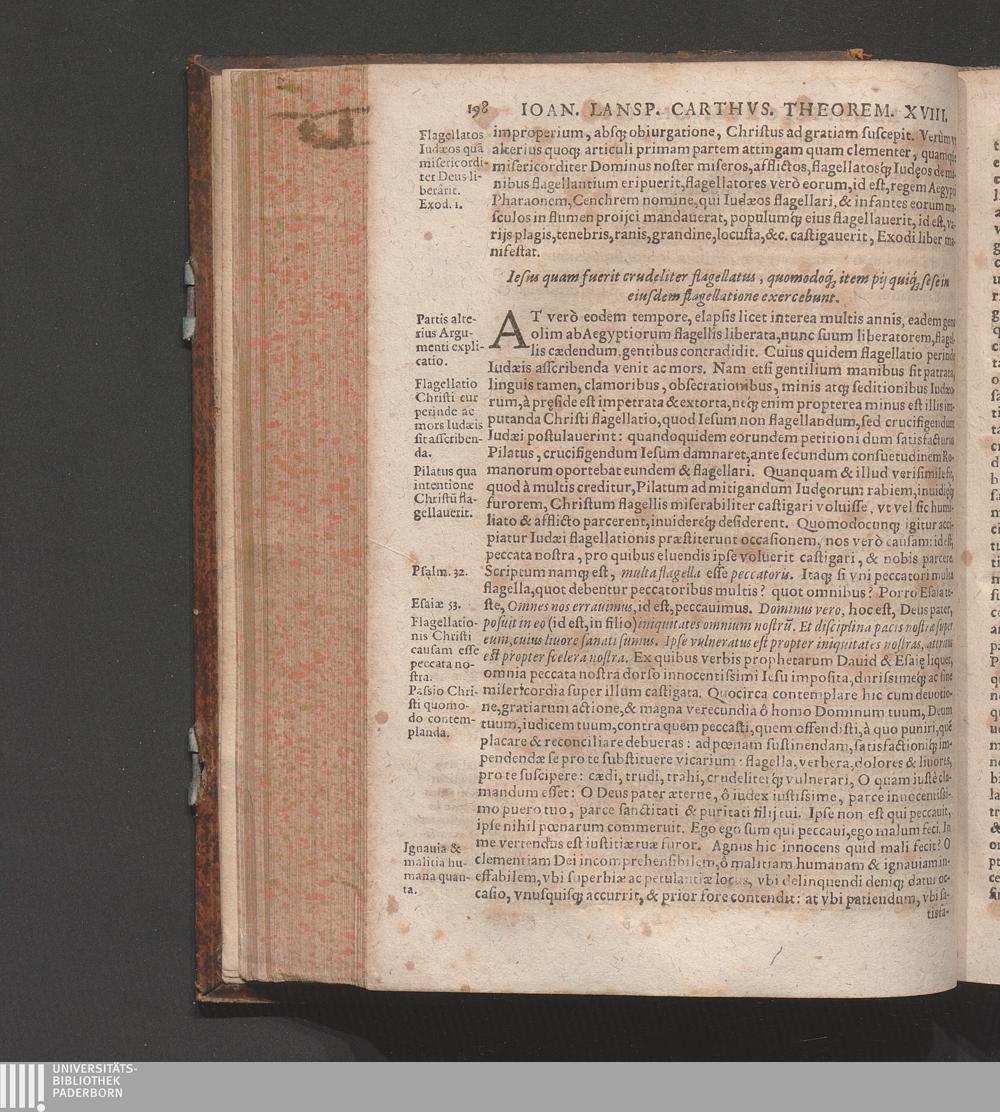 198 IOAN. LANSP. CARTHVS. THEOREM. XVIII.
Flagellatos
Iudæos quã
misericordi-
ter Deus li-
berârit.
Exod. 1.
improperium, absq; obiurgatione, Christus ad gratiam suscepit. Verùm vt
alterius quoq; articuli primam partem attingam quam clementer, quamq;
misericorditer Dominus noster miseros, afflictos, flagellatosq; Iudęos de ma-
nibus flagellantium eripuerit, flagellatores verò eorum, id est, regem Aegypti
Pharaonem, Cenchrem nomine, qui Iudæos flagellari, & infantes eorum ma-
sculos in flumen proijci mandauerat, populumq; eius flagellauerit, id est, va-
rijs plagis, tenebris, ranis, grandine, locusta, &c. castigauerit, Exodi liber ma-
nifestat.
Iesus quam fuerit crudeliter flagellatus, quomodoq; item pij quiq; sese in
eiusdem flagellatione exercebunt.
Partis alte-
rius Argu-
menti expli-
catio.
Flagellatio
Christi cur
perinde ac
mors Iudæis
sit asscriben-
da.
Pilatus qua
intentione
Christũ fla-
gellauerit.
Psalm. 32.
Esaiæ 53.
Flagellatio-
nis Christi
causam esse
peccata no-
stra.
Passio Chri-
sti quomo-
do contem-
planda.
Ignauia &
malitia hu-
mana quan-
ta.
AT verò eodem tempore, elapsis licet interea multis annis, eadem gens
olim ab Aegyptiorum flagellis liberata, nunc suum liberatorem, flagel-
lis cædendum gentibus contradidit. Cuius quidem flagellatio perinde
Iudæis asscribenda venit ac mors. Nam etsi gentilium manibus sit patrata,
linguis tamen, clamoribus, obsecrationibus, minis atq; seditionibus Iudæo-
rum, à pręside est impetrata & extorta, neq; enim propterea minus est illis im-
putanda Christi flagellatio, quod Iesum non flagellandum, sed crucifigendum
Iudæi postulauerint: quandoquidem eorundem petitioni dum satisfacturus
Pilatus, crucifigendum Iesum damnaret, ante secundum consuetudinem Ro-
manorum oportebat eundem & flagellari. Quanquam & illud verisimile sit,
quod à multis creditur, Pilatum ad mitigandum Iudęorum rabiem, inuidięq;
furorem, Christum flagellis miserabiliter castigari voluisse, vt vel sic humi-
liato & afflicto parcerent, inuidereq; desiderent. Quomodocunq; igitur acci-
piatur Iudæi flagellationis præstiterunt occasionem, nos verò causam: id est,
peccata nostra, pro quibus eluendis ipse voluerit castigari, & nobis parcere
Scriptum namq; est, multa flagella esse peccatoris. Itaq; si vni peccatori multa
flagella, quot debentur peccatoribus multis? quot omnibus? Porro Esaia te-
ste, Omnes nos errauimus, id est, peccauimus. Dominus vero, hoc est, Deus pater,
posuit in eo (id est, in filio) iniquitates omnium nostrũ. Et disciplina pacis nostræ super
eum, cuius liuore sanati sumus. Ipse vulneratus est propter iniquitates nostras, attritus
est propter scelera nostra. Ex quibus verbis prophetarum Dauid & Esaię liquet,
omnia peccata nostra dorso innocentissimi Iesu imposita, durissimeq; ac sine
misericordia super illum castigata. Quocirca contemplare hic cum deuotio-
ne, gratiarum actione, & magna verecundia ô homo Dominum tuum, Deum
tuum, iudicem tuum, contra quem peccasti, quem offendisti, à quo puniri, quẽ
placare & reconciliare debueras: ad pœnam sustinendam, satisfactioniq; im-
pendendæ se pro te substituere vicarium: flagella, verbera, dolores & liuores,
pro te suscipere: cædi, trudi, trahi, crudeliterq; vulnerari, O quam iustè cla-
mandum esset: O Deus pater æterne, ô iudex iustissime, parce innocentissi-
mo puero tuo, parce sanctitati & puritati filij tui. Ipse non est qui peccauit,
ipse nihil pœnarum commeruit. Ego ego sum qui peccaui, ego malum feci. In
me vertendus est iustitiæ tuæ furor. Agnus hic innocens quid mali fecit? O
clementiam Dei incomprehensibilem, ô malitiam humanam & ignauiam in-
effabilem, vbi superbiæ ac petulantiæ locus, vbi delinquendi deniq; datur oc-
casio, vnusquisq; accurrit, & prior fore contendit: at vbi patiendum, vbi sa-
tisfa-
UNIVERSITÄTS-
BIBLIOTHEK
PADERBORN